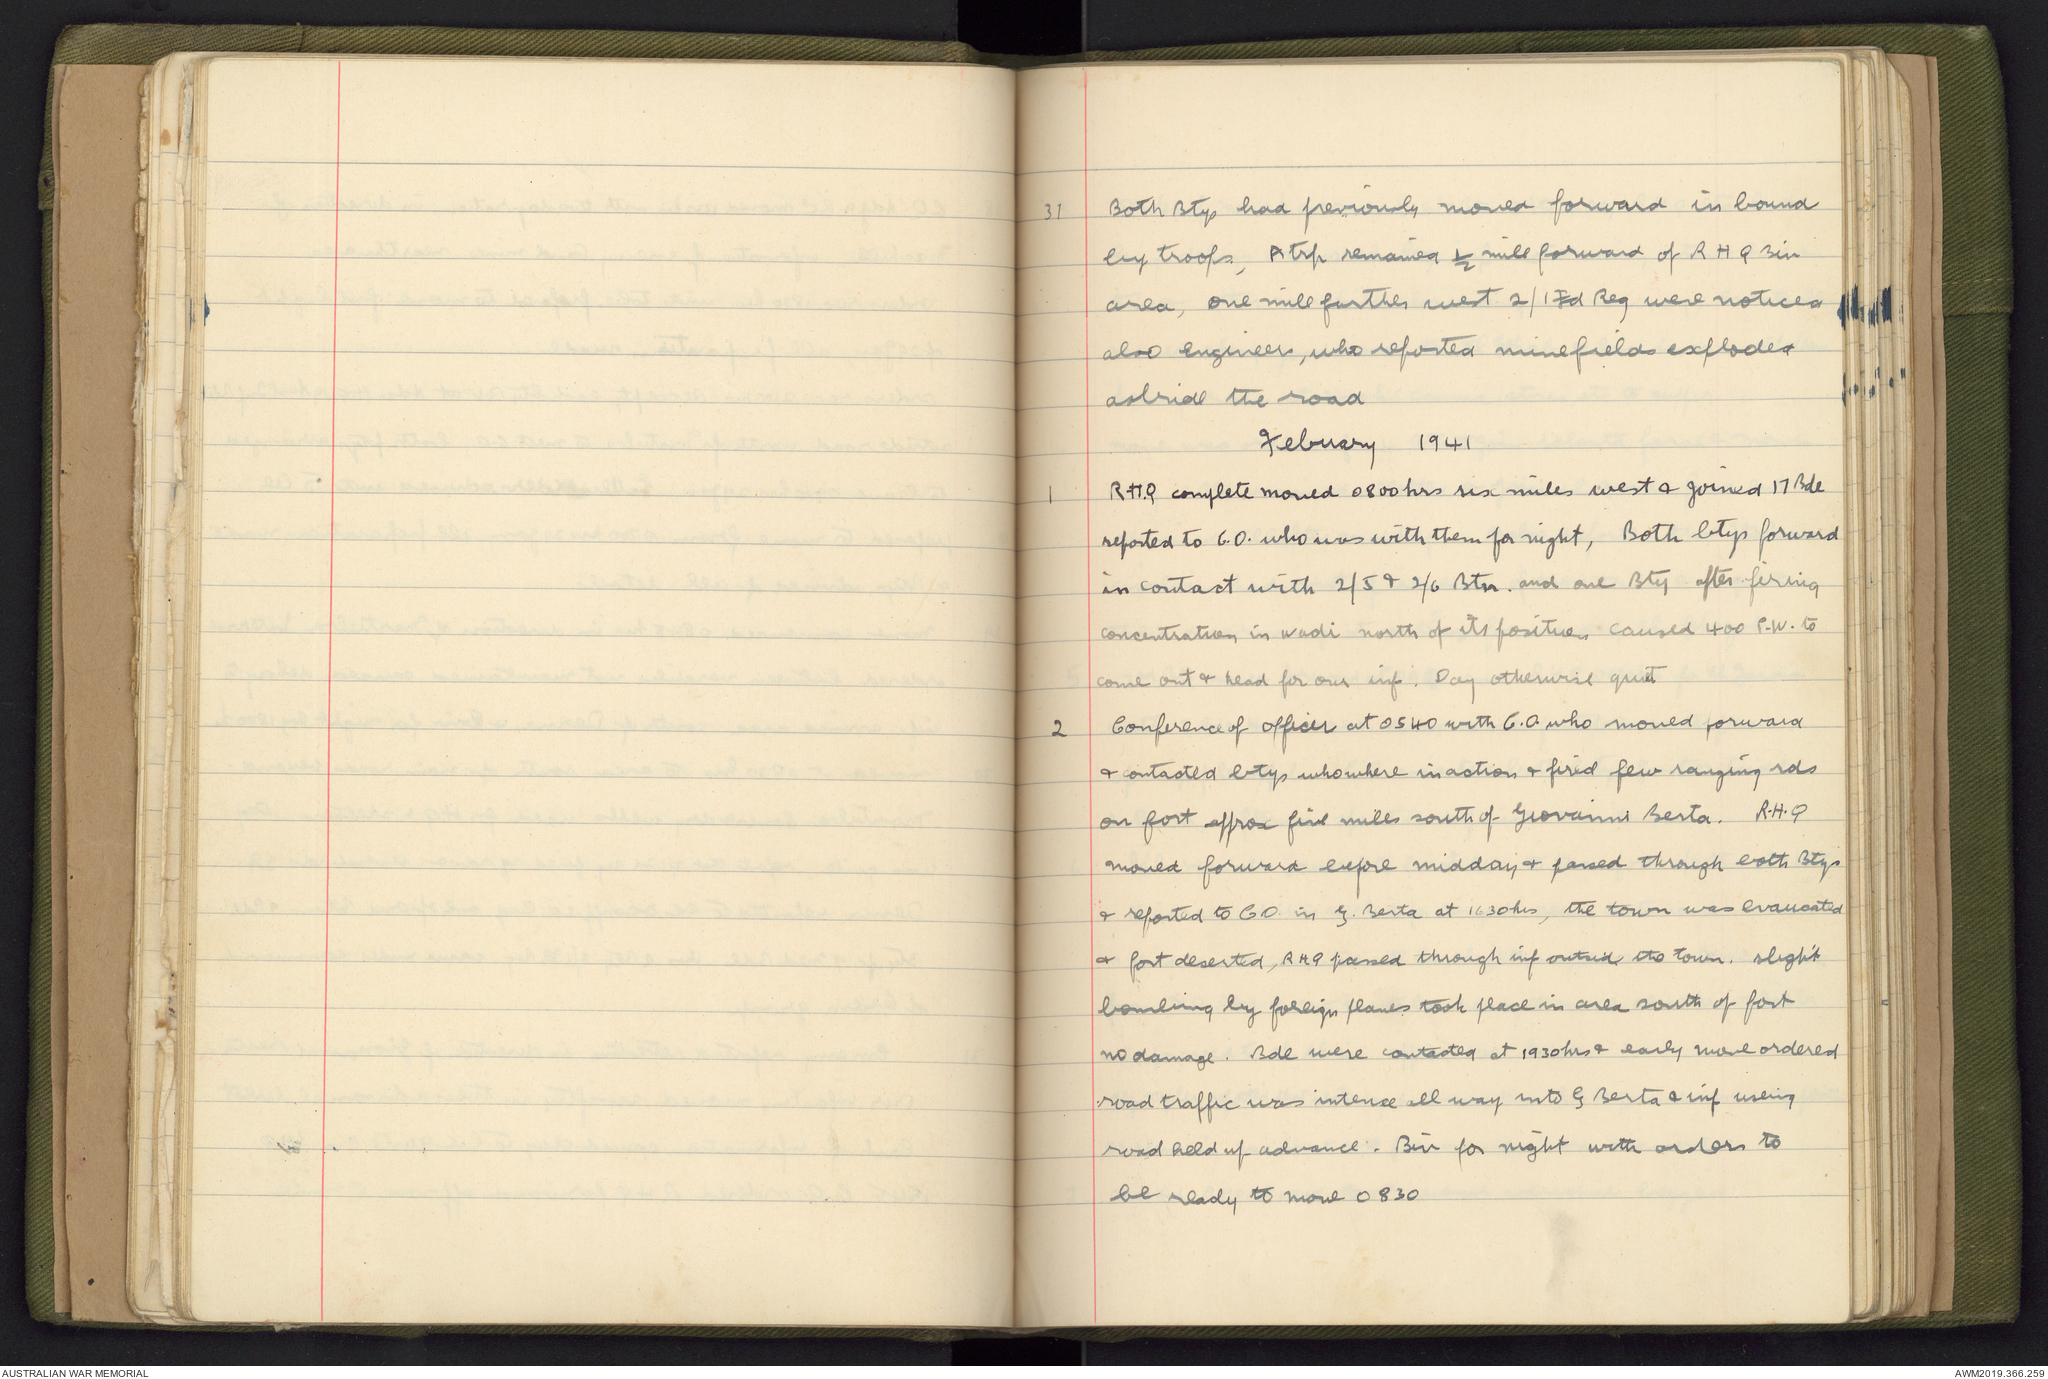 31 Both Btys had previously moved forward in bound
by troops, A trp remained ½ mile forward of R H Q Biv
area, one mile further west 2/1 Fd Reg were noticed
also engineers, who reported minefields exploded
astride the road
Febuary 1941
1 R.H.Q complete moved 0800hrs six miles west & joined 17 Bde
reported to C.O. who was with them for night, Both btys forward
in contact with 2/5 & 2/6 Btn. and one Bty after firing
concentration in wadi north of its position caused 400 P.W. to
come out & head for our inf. Day otherwise quiet
2 Conference of officer at 0540 with C.O who moved forward
& contacted btys whowhere in action & fired few ranging rds
on fort approx five miles south of Giovanni Berta. R.H.Q
moved forward before midday & passed through both Btys
& reported to C O. in G. Berta at 1630hrs, the town was evaucated
& fort deserted, R H Q passed through inf outside the town. slight
bombing by foreign planes took place in area south of fort
no damage. Bde were contacted at 1930hrs & early move ordered
road traffic was intense all way into G Berta & inf using
road held up advance. Biv for night with orders to
be ready to move 0830
AUSTRALIAN WAR MEMORIAL
AWM2019.366.259